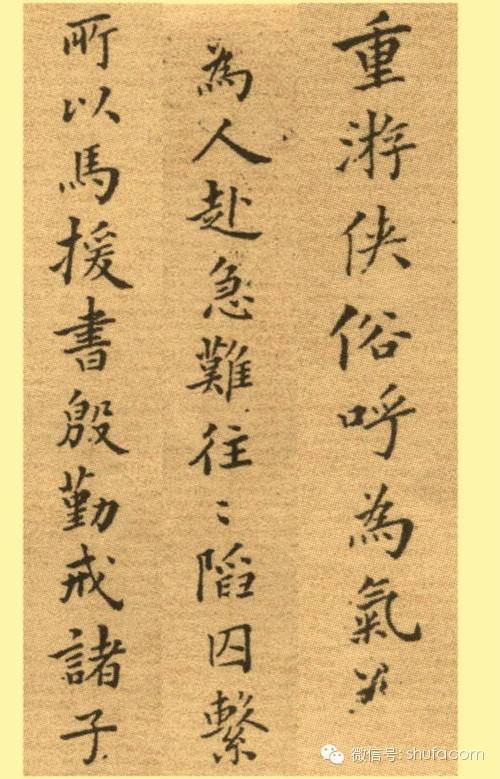 重游俠俗呼為氣義
為人赴急難往〻陷囚繫
所以馬援書殷勤戒諸子
微信号: shufacom